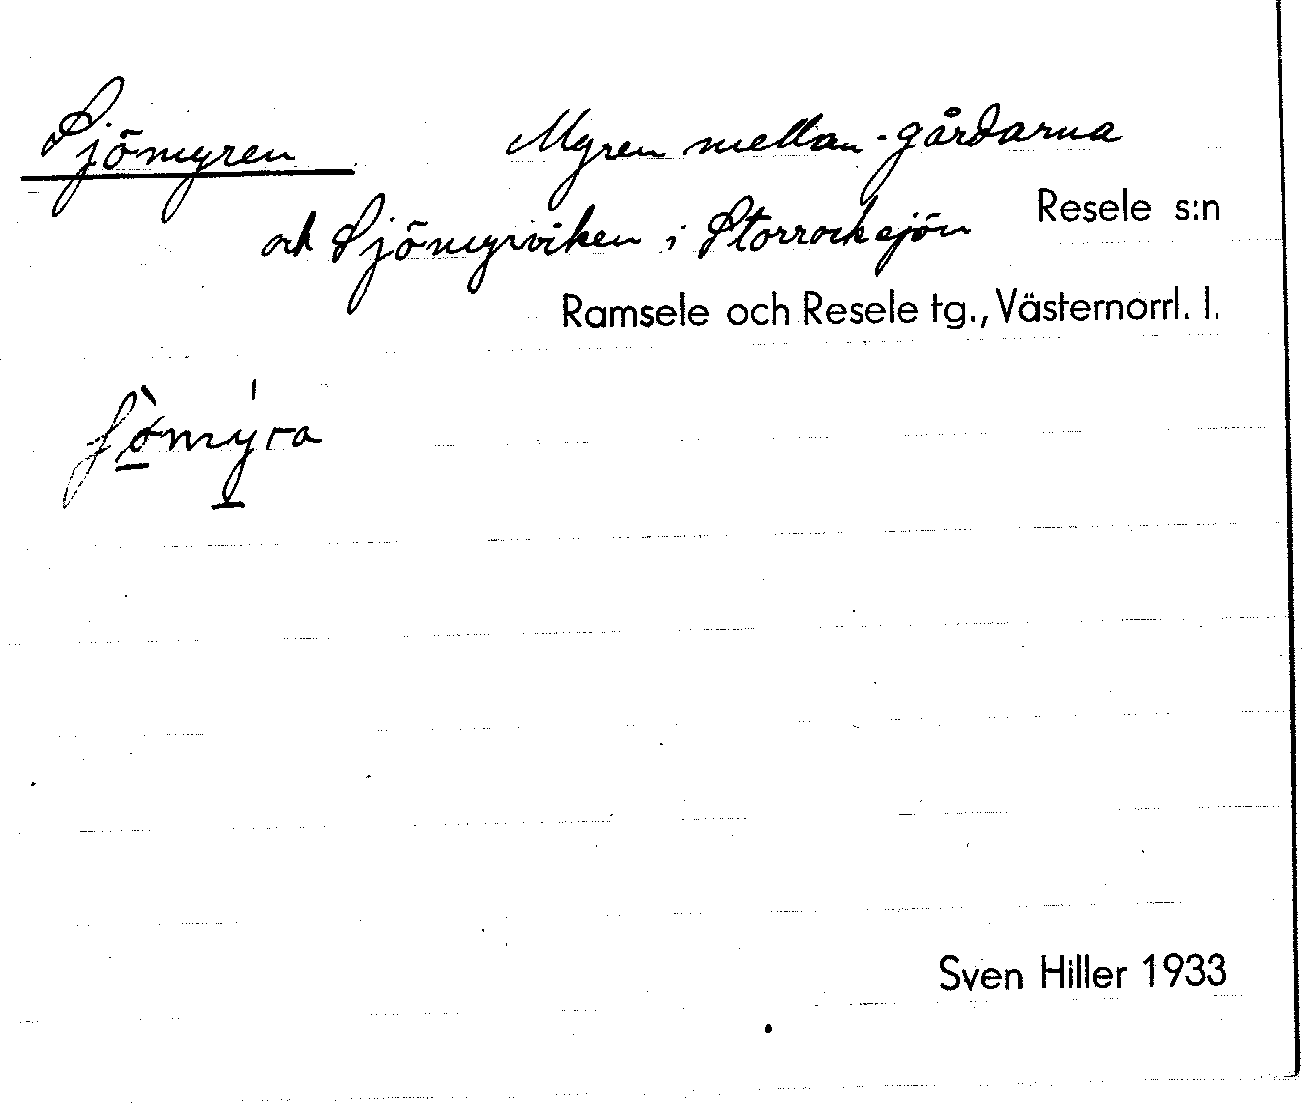 Sjömyren Myren mellan -gårdarna
Resele s:n
och Sjömyrviken i Storrocksjön
Ramsele och Resele tg., Västernorrl. l.
ʃö̀mýra
Sven Hiller 1933